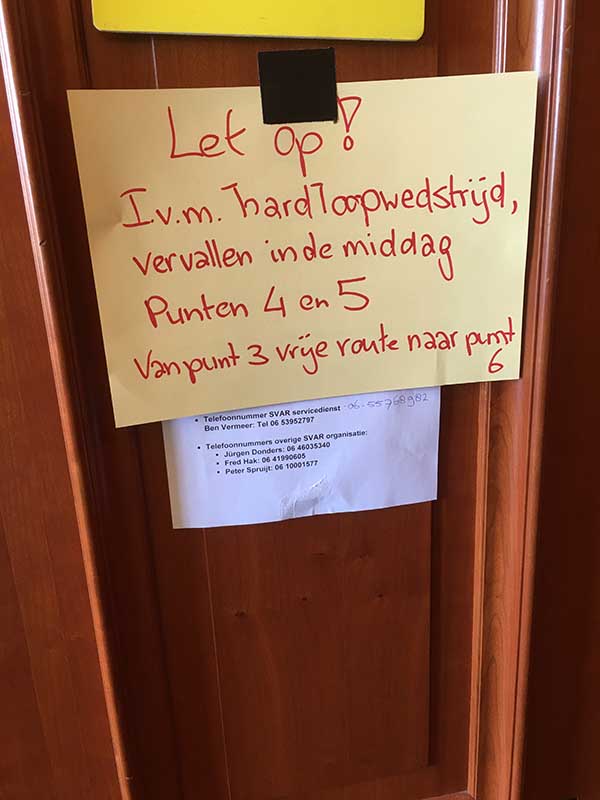 Let op!
I.v.m. hardloopwedstrijd,
vervallen in de middag
Punten 4 en 5
Van punt 3 vrije route naar punt
6
• Telefoonnummer SVAR servicedienst 06-55768982
Ben Vermeer: Tel 06 53952797
• Telefoonnummers overige SVAR organisatie:
• Jürgen Donders: 06 46035340
• Fred Hak: 06 41990605
• Peter Spruijt: 06 10001577